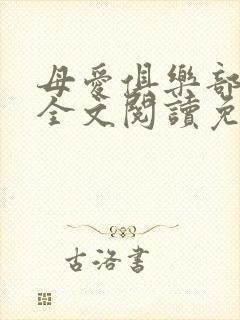 母愛俱樂部
全文閱讀免
古洛書